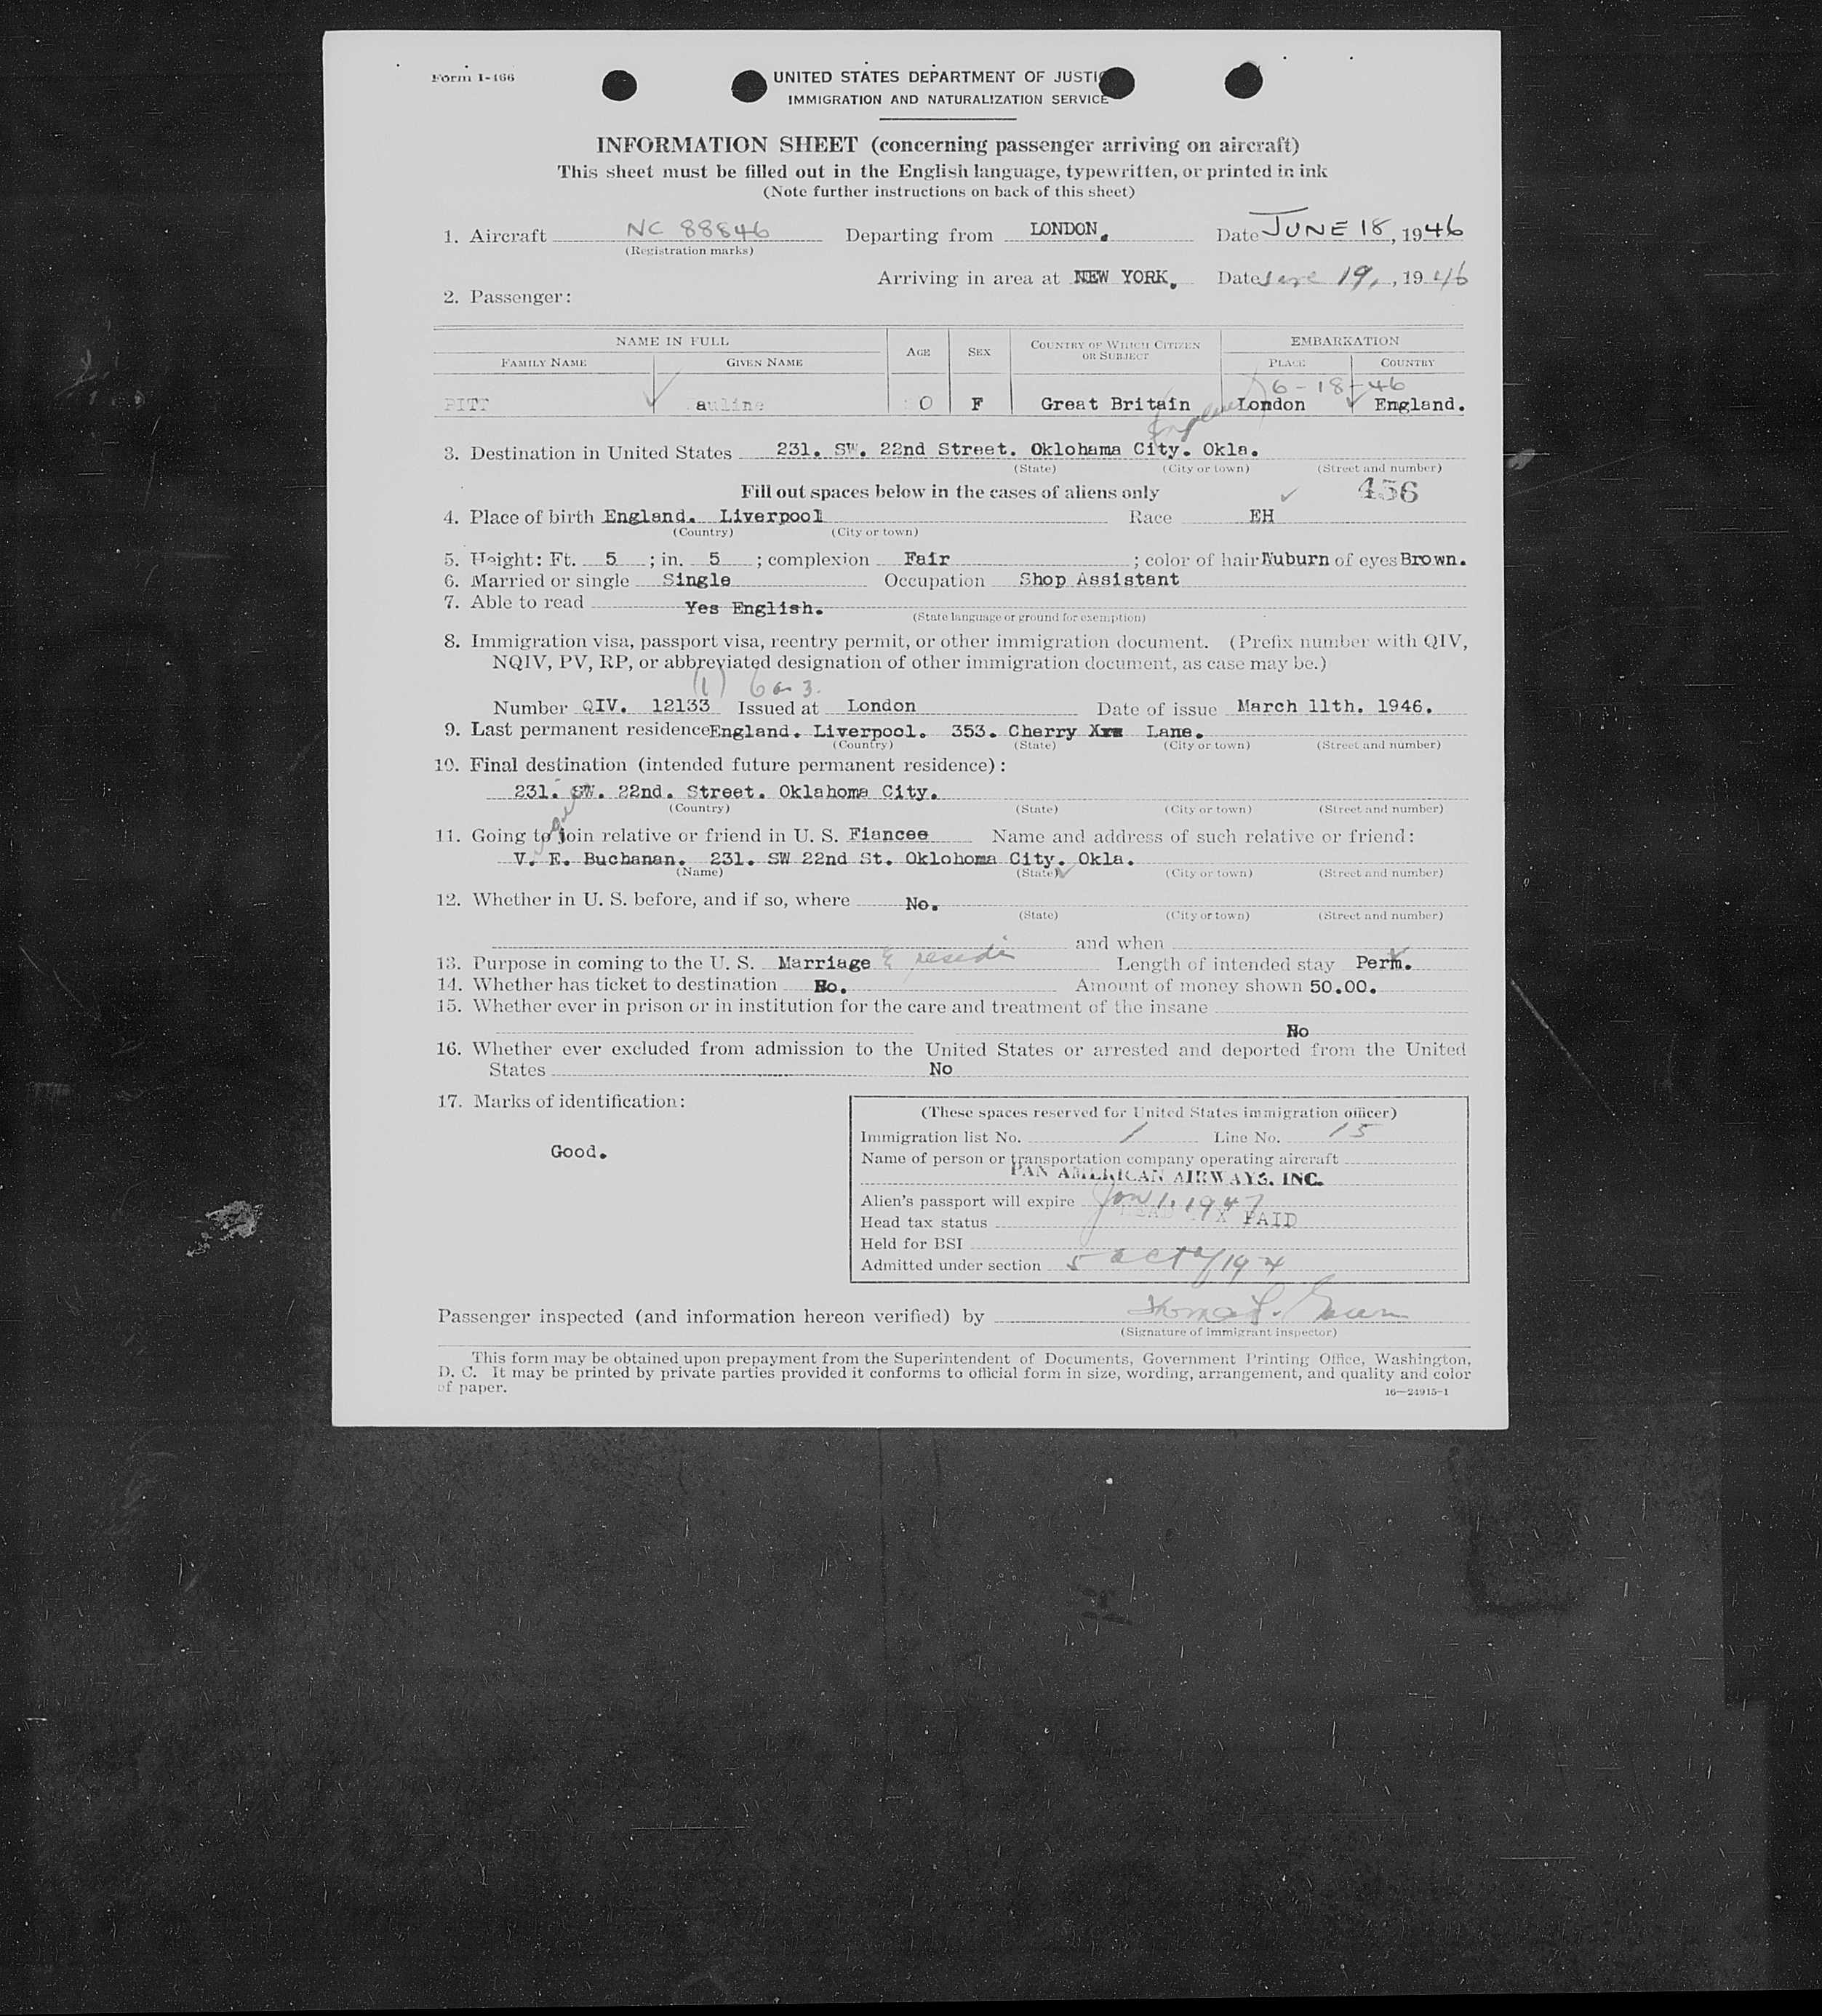 Form I-466
UNITED STATES DEPARTMENT OF JUSTIC
IMMIGRATION AND NATURALIZATION SERVICE
INFORMATION SHEET (concerning passenger arriving on aircraft)
This sheet must be filled out in the English language, typewritten, or printed in ink
(Note further instructions on back of this sheet)
1. Aircraft NC 88846 Departing from LONDON. Date JUNE 18, 1946
(Registration marks)
Arriving in area at NEW YORK. Date June 19, 1946
2. Passenger:
NAME IN FULL AGE SEX COUNTRY OF WHICH CITIZEN OR SUBJECT EMBARKATION
FAMILY NAME GIVEN NAME PLACE COUNTRY
6-18-46
PITT auline 0 F Great Britain London England.
3. Destination in United States 231. SW. 22nd Street. Oklohama City. Okla.
(State) (City or town) (Street and number)
Fill out spaces below in the cases of aliens only 456
4. Place of birth England. Liverpool Race EH
(Country) (City or town)
5. Height: Ft. 5 ; in. 5 ; complexion Fair ; color of hair Auburn of eyes Brown.
6. Married or single Single Occupation Shop Assistant
7. Able to read Yes English.
(State language or ground for exemption)
8. Immigration visa, passport visa, reentry permit, or other immigration document. (Prefix number with QIV,
NQIV, PV, RP, or abbreviated designation of other immigration document, as case may be.)
(1) 6 a 3.
Number QIV. 12133 Issued at London Date of issue March 11th. 1946.
9. Last permanent residence England. Liverpool. 353. Cherry Lane.
(Country) (State) (City or town) (Street and number)
10. Final destination (intended future permanent residence):
231. SW. 22nd. Street. Oklahoma City.
(Country) (State) (City or town) (Street and number)
11. Going to join relative or friend in U. S. Fiancee Name and address of such relative or friend:
V. E. Buchanan. 231. SW 22nd St. Oklohoma City. Okla.
(Name) (State) (City or town) (Street and number)
12. Whether in U. S. before, and if so, where No.
(State) (City or town) (Street and number)
and when
13. Purpose in coming to the U. S. Marriage & reside Length of intended stay Perm.
14. Whether has ticket to destination No. Amount of money shown 50.00.
15. Whether ever in prison or in institution for the care and treatment of the insane
No
16. Whether ever excluded from admission to the United States or arrested and deported from the United
States No
17. Marks of identification:
Good.
(These spaces reserved for United States immigration officer)
Immigration list No. 1 Line No. 15
Name of person or transportation company operating aircraft
PAN AMERICAN AIRWAYS, INC.
Alien's passport will expire Jan 1, 1947
Head tax status HEAD TAX PAID
Held for BSI
Admitted under section 5 act of 1924
Passenger inspected (and information hereon verified) by
(Signature of immigrant inspector)
This form may be obtained upon prepayment from the Superintendent of Documents, Government Printing Office, Washington,
D. C. It may be printed by private parties provided it conforms to official form in size, wording, arrangement, and quality and color
of paper.
16—24915-1